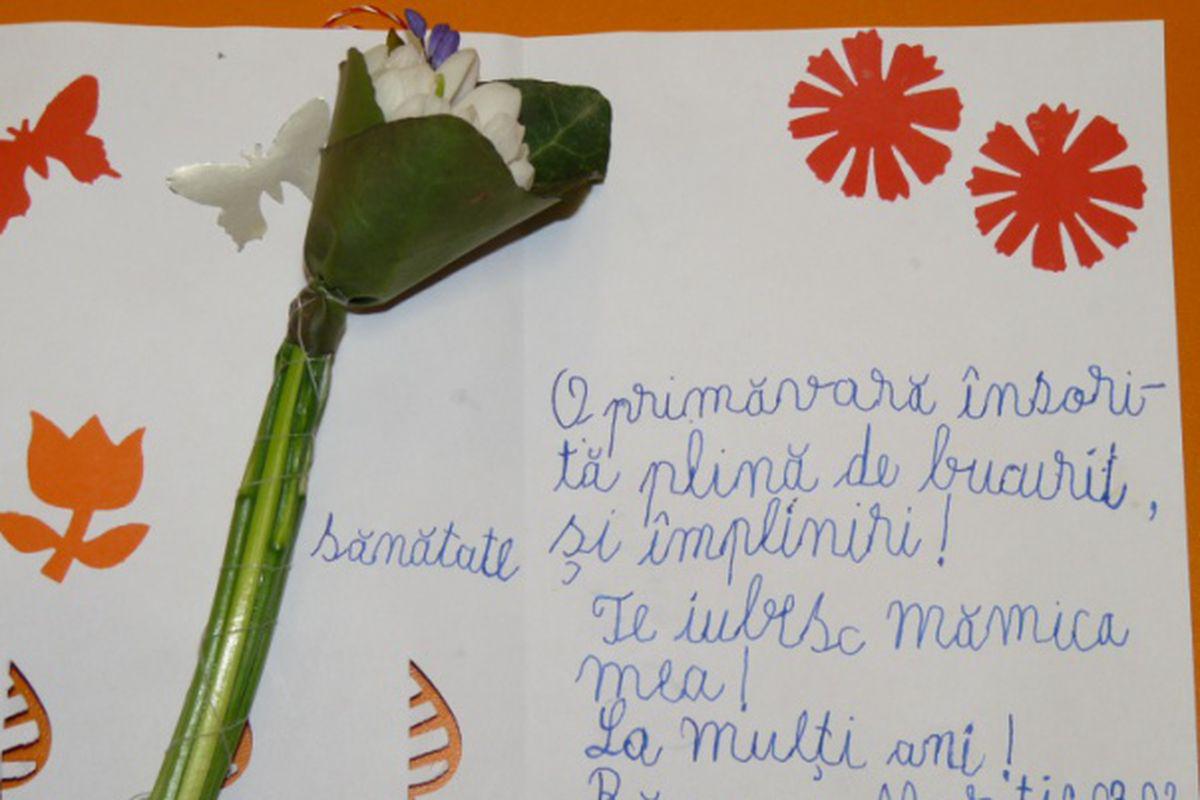 O primăvară însori-
tă plină de bucurie,
sănătate și împliniri!
Te iubesc mămica
mea!
La mulți ani!